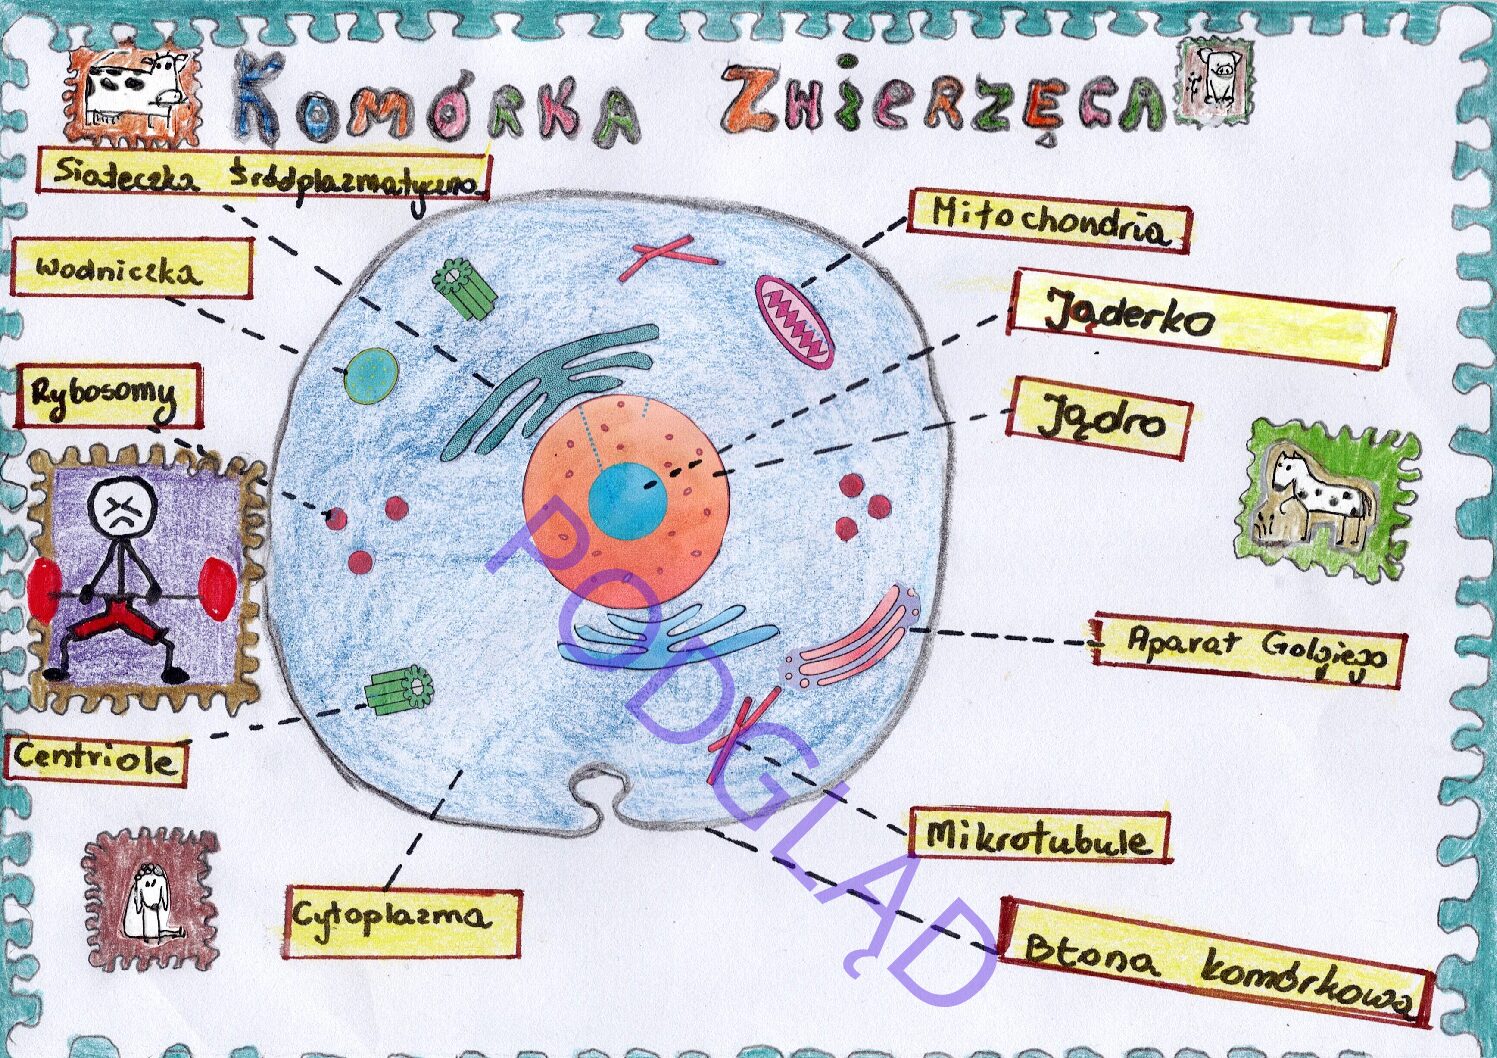 Komórka Zwierzęca
Siateczka śródplazmatyczna
Mitochondria
Wodniczka
Jąderko
Rybosomy
Jądro
Aparat Golgiego
Centriole
Mikrotubule
Cytoplazma
Błona komórkowa
PODGLĄD